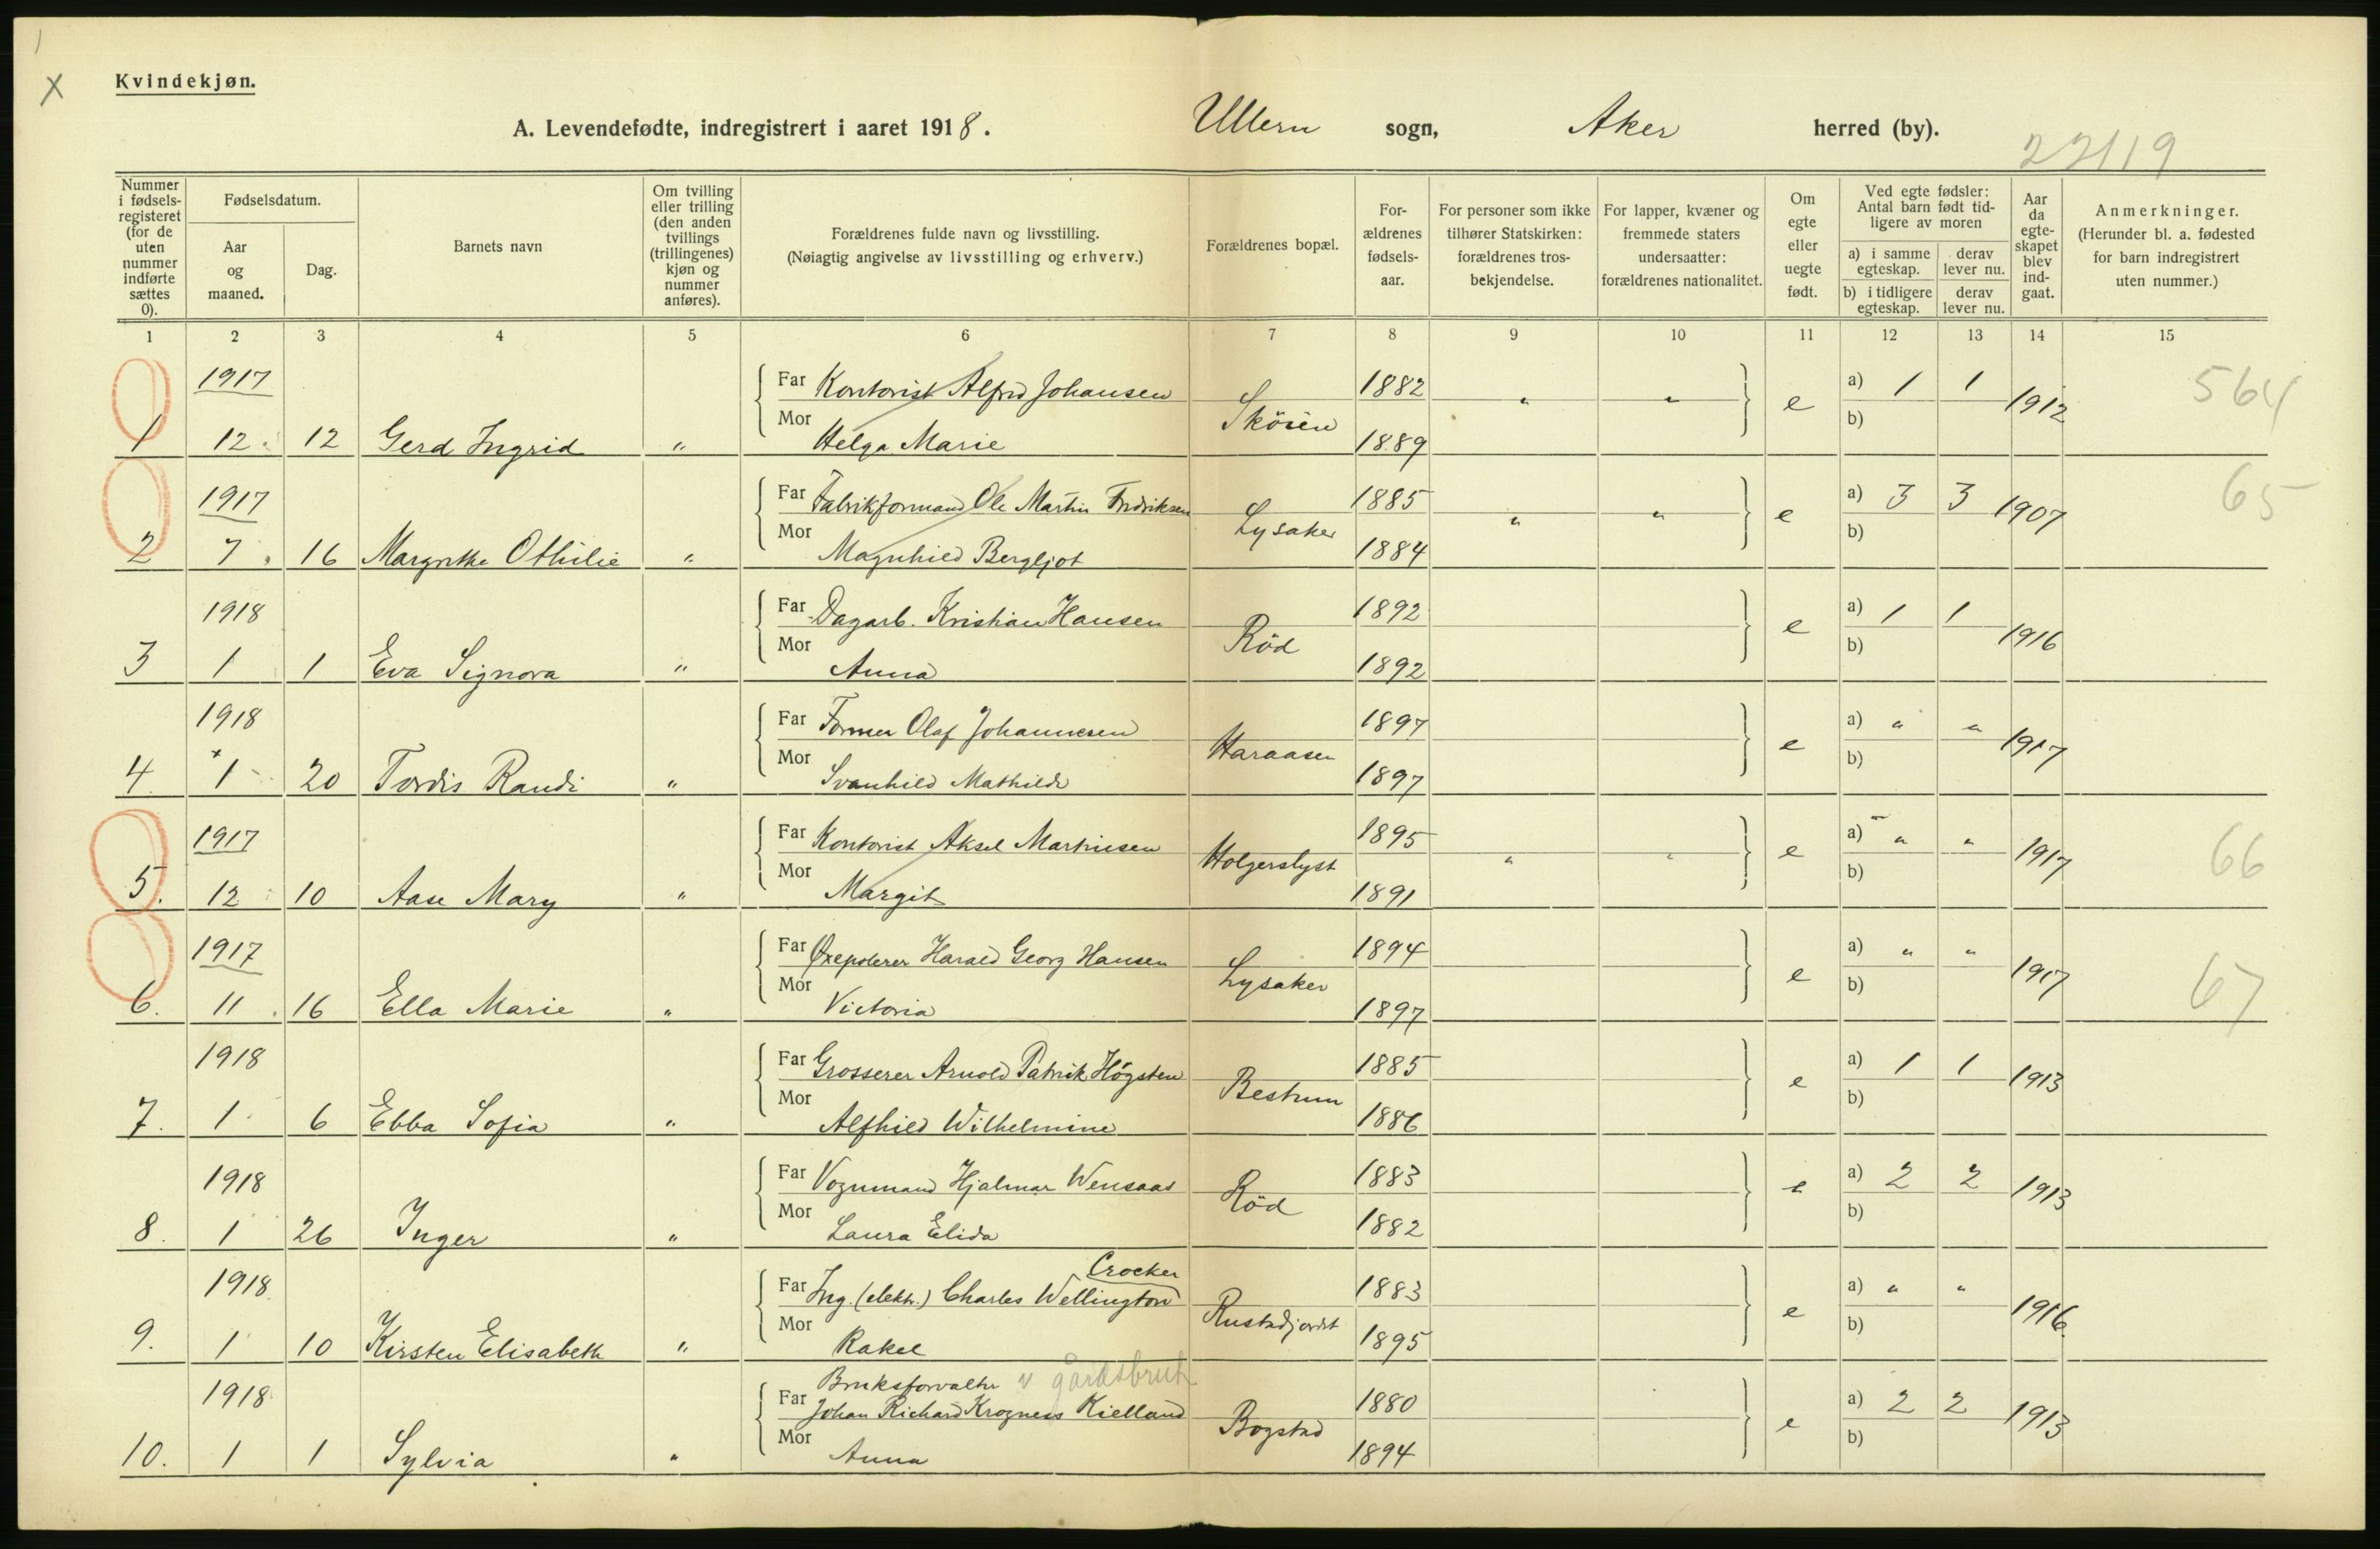 Kvindekjøn.
X
A. Levendefødte, indregistrert i aaret 1918. Ullern sogn, Aker herred (by).
22119
Nummer i fødsels-registeret (for de uten nummer indførte sættes 0).
Fødselsdatum.
Aar og maaned.
Dag.
Barnets navn
Om tvilling eller trilling (den anden tvillings (trillingenes) kjøn og nummer anføres).
Forældrenes fulde navn og livsstilling. (Nøiagtig angivelse av livsstilling og erhverv.)
Forældrenes bopæl.
For-ældrenes fødsels-aar.
For personer som ikke tilhører Statskirken: forældrenes tros-bekjendelse.
For lapper, kvæner og fremmede staters undersaatter: forældrenes nationalitet.
Om egte eller uegte født.
Ved egte fødsler: Antal barn født tid-ligere av moren
a) i samme egteskap. derav lever nu.
b) i tidligere egteskap. derav lever nu.
Aar da egte-skapet blev ind-gaat.
Anmerkninger. (Herunder bl. a. fødested for barn indregistrert uten nummer.)
1 2 3 4 5 6 7 8 9 10 11 12 13 14 15
1917 Far Kontorist Alfred Johansen 1882 a) 1 1 564
1 12 12 Gerd Ingrid " Mor Helga Marie Sköien 1889 " " e b) 1912
1917 Far Fabrikformand Ole Martin Fredriksen 1885 a) 3 3 65
2 7 16 Margrethe Othilie " Mor Magnhild Bergljot Lysaker 1884 " " e b) 1907
1918 Far Dagarb. Kristian Hansen 1892 a) 1 1
3 1 1 Eva Signora " Mor Anna Röd 1892 e b) 1916
1918 Far Former Olaf Johannesen 1897 a) " "
4 1 20 Tordis Randi " Mor Svanhild Mathilde Haraasen 1897 e b) 1917
1917 Far Kontorist Aksel Martinsen 1895 a) " " 66
5. 12 10 Aase Mary " Mor Margit Holgerslyst 1891 " " e b) 1917
1917 Far Øxepolerer Harald Georg Hansen 1894 a) " " 67
6. 11 16 Ella Marie " Mor Victoria Lysaker 1897 e b) 1917
1918 Far Grosserer Arnold Patrik Högsten 1885 a) 1 1
7. 1 6 Ebba Sofia " Mor Alfhild Wilhelmine Bestum 1886 e b) 1913
1918 Far Vognmand Hjalmar Wensaas 1883 a) 2 2
8. 1 26 Inger " Mor Laura Elida Röd 1882 e b) 1913
Crocker
1918 Far Ing. (elektr.) Charles Wellington 1883 a) " "
9. 1 10 Kirsten Elisabeth " Mor Rakel Rustadjordet 1895 e b) 1916
Bruksforvalter v gårdsbruk
1918 Far Johan Richard Krogness Kielland 1880 a) 2 2
10. 1 1 Sylvia " Mor Anna Bogstad 1894 e b) 1913